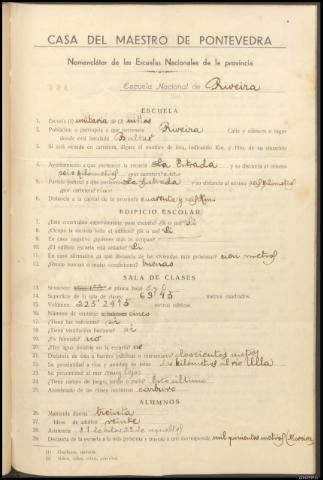 CASA DEL MAESTRO DE PONTEVEDRA
Nomenclátor de las Escuelas Nacionales de la provincia
Escuela Nacional de Riveira
ESCUELA
1. Escuela (1) unitaria de (2) niñas
2. Población o parroquia a que pertenece Riveira Calle y número o lugar
donde está instalada Baltar
3. Si está situada en carretera, dígase el nombre de ésta, indicando Km. y Hm. de su situación
4. Ayuntamiento a que pertenece la escuela La Estrada y su distancia al mismo
seis kilómetros
5. Partido judicial a que pertenece La Estrada y su distancia al mismo seis kilómetros
6. Distancia a la capital de la provincia cuarenta y seis Km
EDIFICIO ESCOLAR
7. ¿Está construido expresamente para escuela? ¿Sí o no? Sí
8. ¿Ocupa la escuela todo el edificio? ¿Sí o no? Sí
9. En caso negativo ¿quiénes más lo ocupan?
10. ¿El edificio escuela está aislado? Sí
11. En caso afirmativo ¿a qué distancia de las viviendas más próximas? cien metros
12. ¿Reúne buenas o malas condiciones? buenas
SALA DE CLASES
13. planta baja
14. Superficie de la sala de clases 63'45 metros cuadrados.
15. Volumen 225'2475 metros cúbicos.
16. Número de ventanas cinco
17. ¿Tiene luz suficiente? sí
18. ¿Tiene ventilación bastante? sí
19. ¿Es húmeda? no
20. ¿Hay agua potable en la escuela? no
21. Distancia de ésta a fuentes públicas o manantiales doscientos metros
22. Su proximidad a ríos y nombre de éstos kilómetros al río Ulla
23. Su proximidad al mar muy lejos
24. ¿Tiene campo de juego, jardín o patio? Esto último
25. Alumbrado de las clases nocturnas carburo
ALUMNOS
26. Matrícula diaria treinta
27. Idem de adultos veinte
28. Asistencia
29. Distancia de la escuela a la más próxima y parroquia a que corresponde mil quinientos metros
(1) Graduada, unitaria.
(2) Niños, niñas, mixta, párvulos.